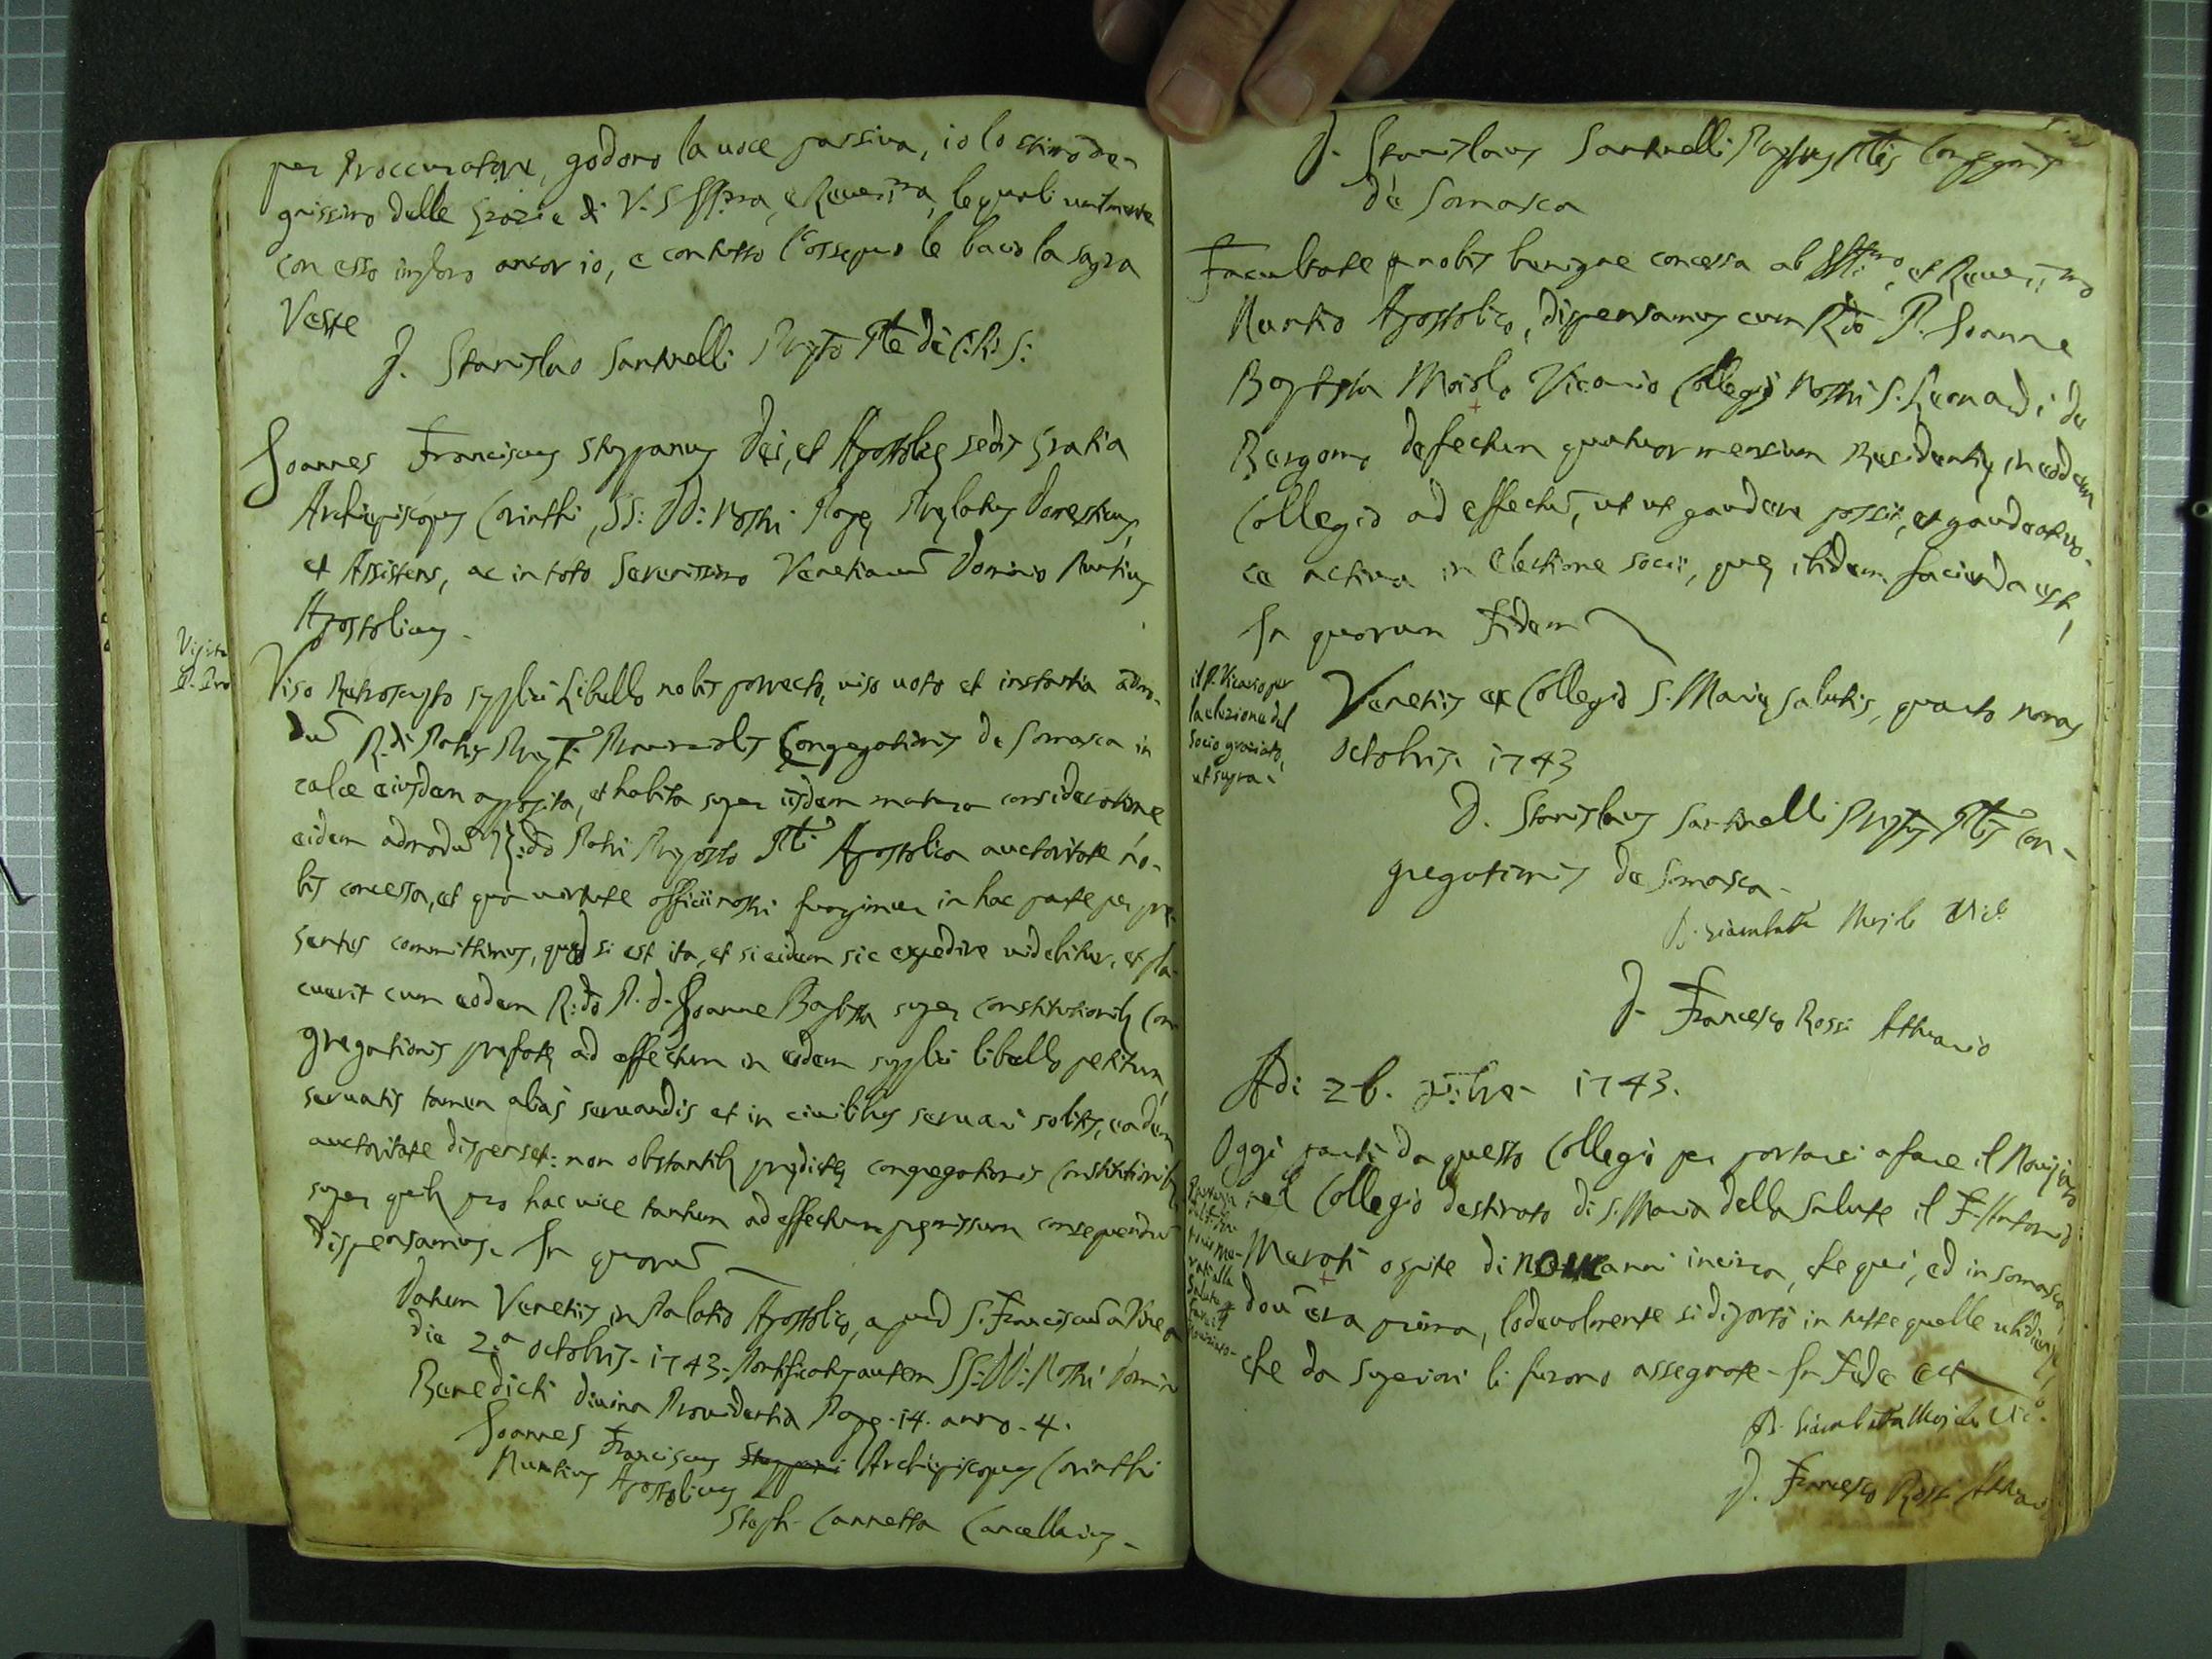 per Proccuratore, godono la voce passiva, io lo stimo de-
gnissimo delle Grazie di V. S. Ill.ma, e Rever.ma, le quali unitamente
con esso imploro ancor io, e con tutto l'ossequio le bacio la sagra
Veste
D. Stanislao Santinelli Prepto Ple di C: R: S:
Joannes Franciscus Stoppanus Dei, et Apostolicę sedis Gratia
Archiepiscopus Corinthi, SS: DD: Nostri Papę Pręlatus Domesticus,
et Assistens, ac in toto Serenissimo Venetiarū Dominio Nuntius
Apostolicus.
Viso Retroscripto supplici Libello nobis porrecto, viso voto et instantia admo-
dū R.di Patris Pręp.ti Provincialis Congregationis de Somasca in
calce eiusdem apposita, et habita super iisdem matura consideratione
eidem admodū R:do Patri Pręposito Pli Apostolica auctoritate no-
bis concessa, et qua virtute officii nostri fungimur in hac parte per prę-
sentes committimus, quod si est ita, et si eidem sic expedire videbitur, et pla-
cuerit cum eodem R:do P. D. Joanne Baptista super constitutionib9 Con-
gregationis pręfatę ad effectum in eodem supplici libello petitum,
servatis tamen alias servandis et in civilibus servari solitis, eadem
auctoritate dispenset: non obstantib9 prędictę congregationis Constitutionib9
super quib9 pro hac vice tantum ad effectum pręmissum consequendū
dispensamus. In quorū
Datum Venetiis in Palatio Apostolico, apud S. Franciscū a Vinea
die 2.a Octobris. 1743. Pontificatus autem SS: DD: Nostri Domini
Benedicti divina Providentia Papę. 14. anno. 4.
Joannes Franciscus Archiepiscopus Corinthi
Nuntius Apostolicus
Steph. Cannetta Cancellarius.
D. Stanislaus Santinelli Pręptus Plis Congregnis
de Somasca
Facultate nobis benigne concessa ab Ill:mo, et Rever:mo
Nuntio Apostolico, dispensamus cum R:do P. Joanne
Baptista Maiolo Vicario Collegij Nostri S. Leonardi de
Bergomo defectum quatuor mensium Residentię in eodem
Collegio ad effectū, ut ut gaudere possit, et gaudeat vo-
ce activa in Electione socii, quę ibidem facienda est,
In quorum Fidem
il P. Vicario per
la elezione del
Socio graziato,
ut supra.
Venetiis ex Collegio S. Marię Salutis, quarto nonas
Octobris. 1743
D. Stanislaus Santinelli Pręptus Plis Con-
gregationis de Somasca.
D. Giambatta Majolo Vic.o
D. Francesco Rossi Attuario
Adi 26. 1743.
Oggi partì da questo Collegio per portarsi a fare il Noviziato
nel Collegio destinato di S. Maria della Salute il F. Antonio
Merati ospite di nove anni incirca, che qui, ed in Somasca,
dov'era prima, lodevolmente si diportò in tutte quelle ubidienze,
che da Superiori li furono assegnate. In Fede ect
D. Giambatta Majolo Vic.o
D. Francesco Rossi Attuario